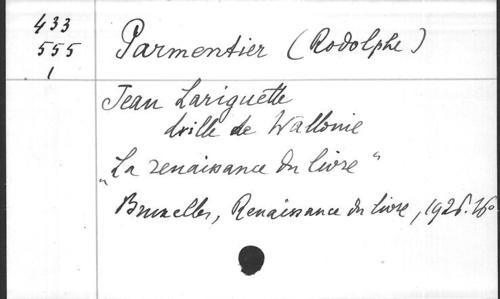 433
555
1
Parmentier (Rodolphe)
Jean Lariguette
drille de Wallonie
„La renaissance du livre"
Bruxelles, Renaissance du livre, 1926. 16°